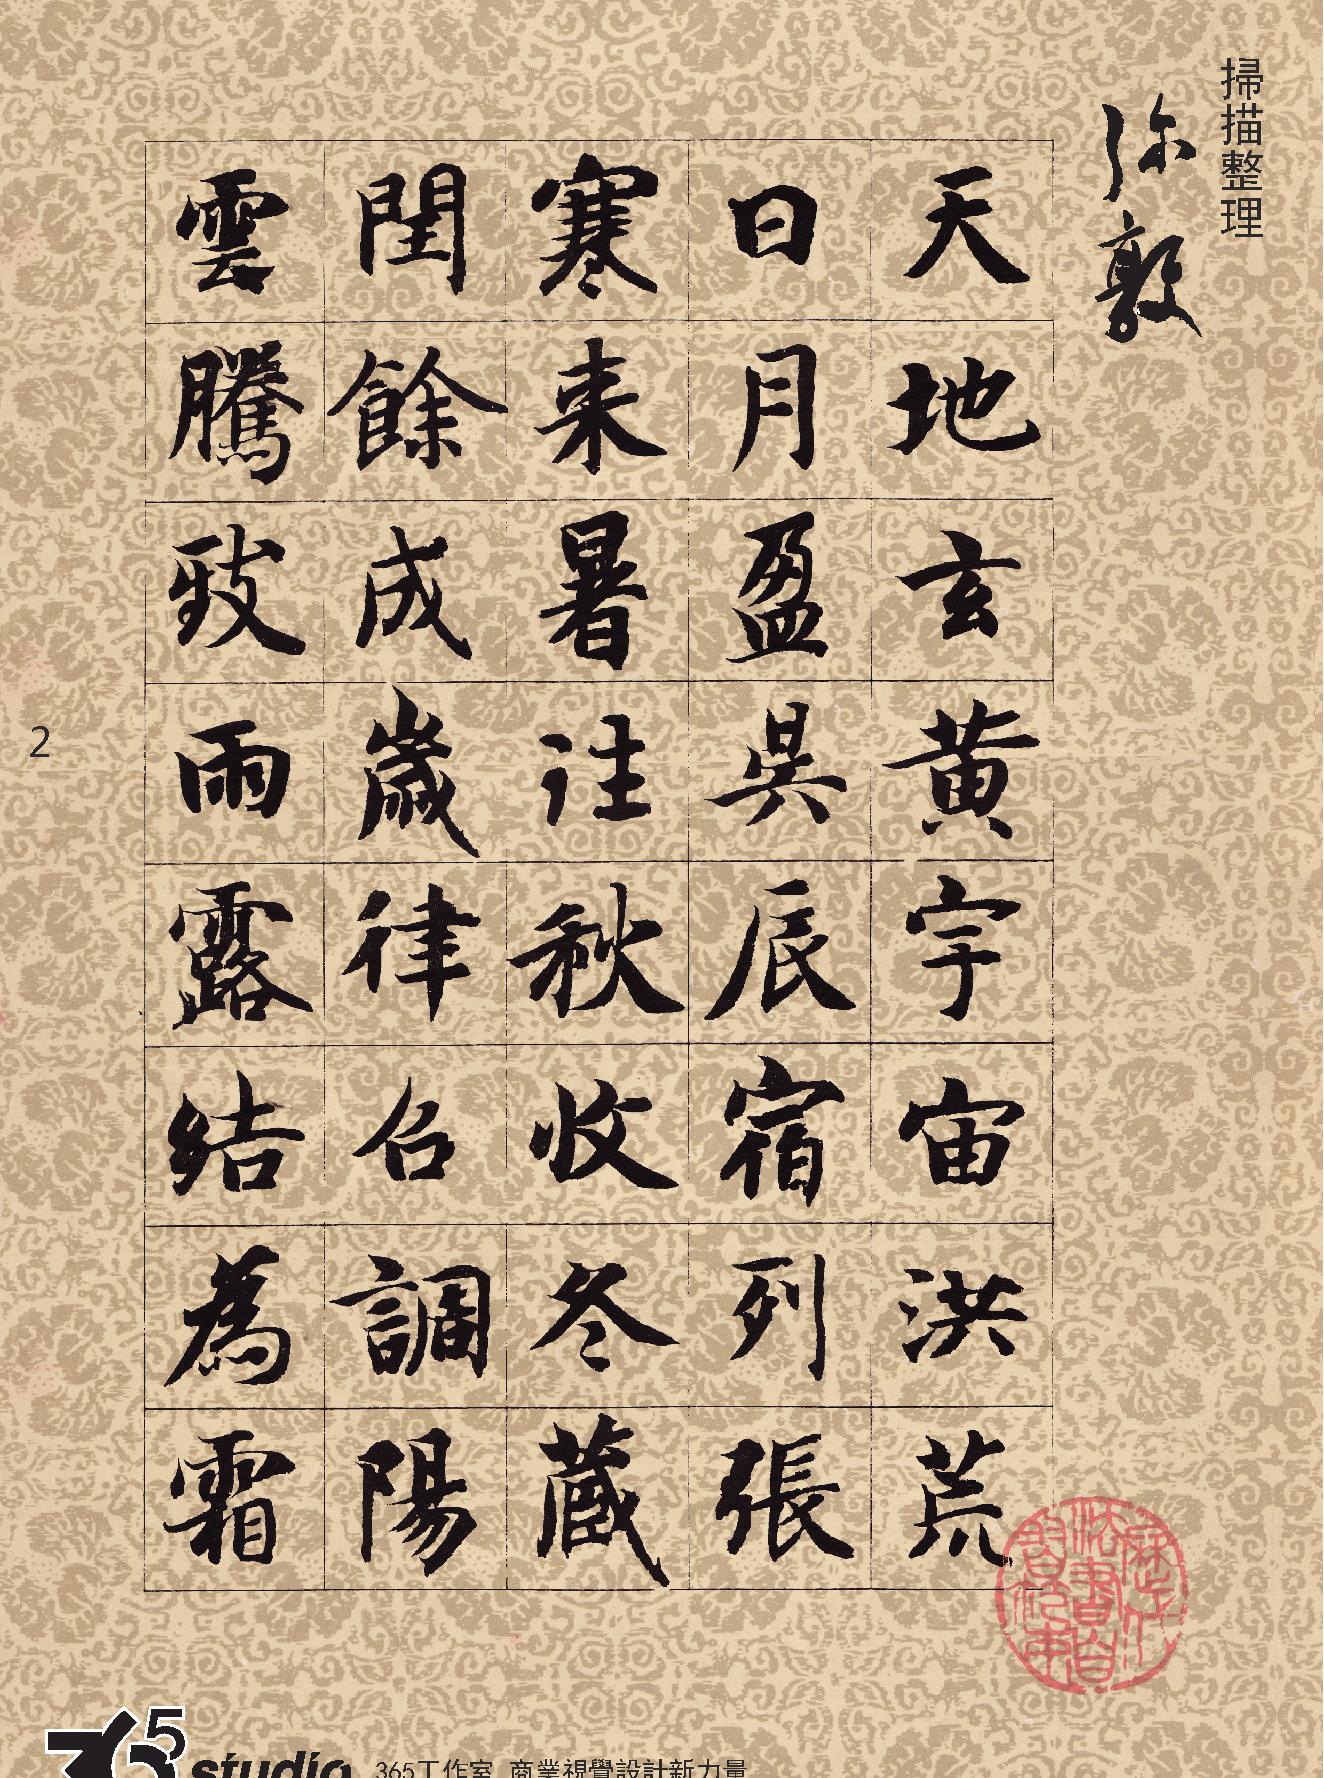 掃描整理
弥敦
天地玄黄宇宙洪荒
日月盈昃辰宿列張
寒来暑往秋收冬藏
閏餘成歲律召調陽
雲騰致雨露結為霜
歷代法書自習範本
2
365 studio 365工作室 商業視覺設計新力量